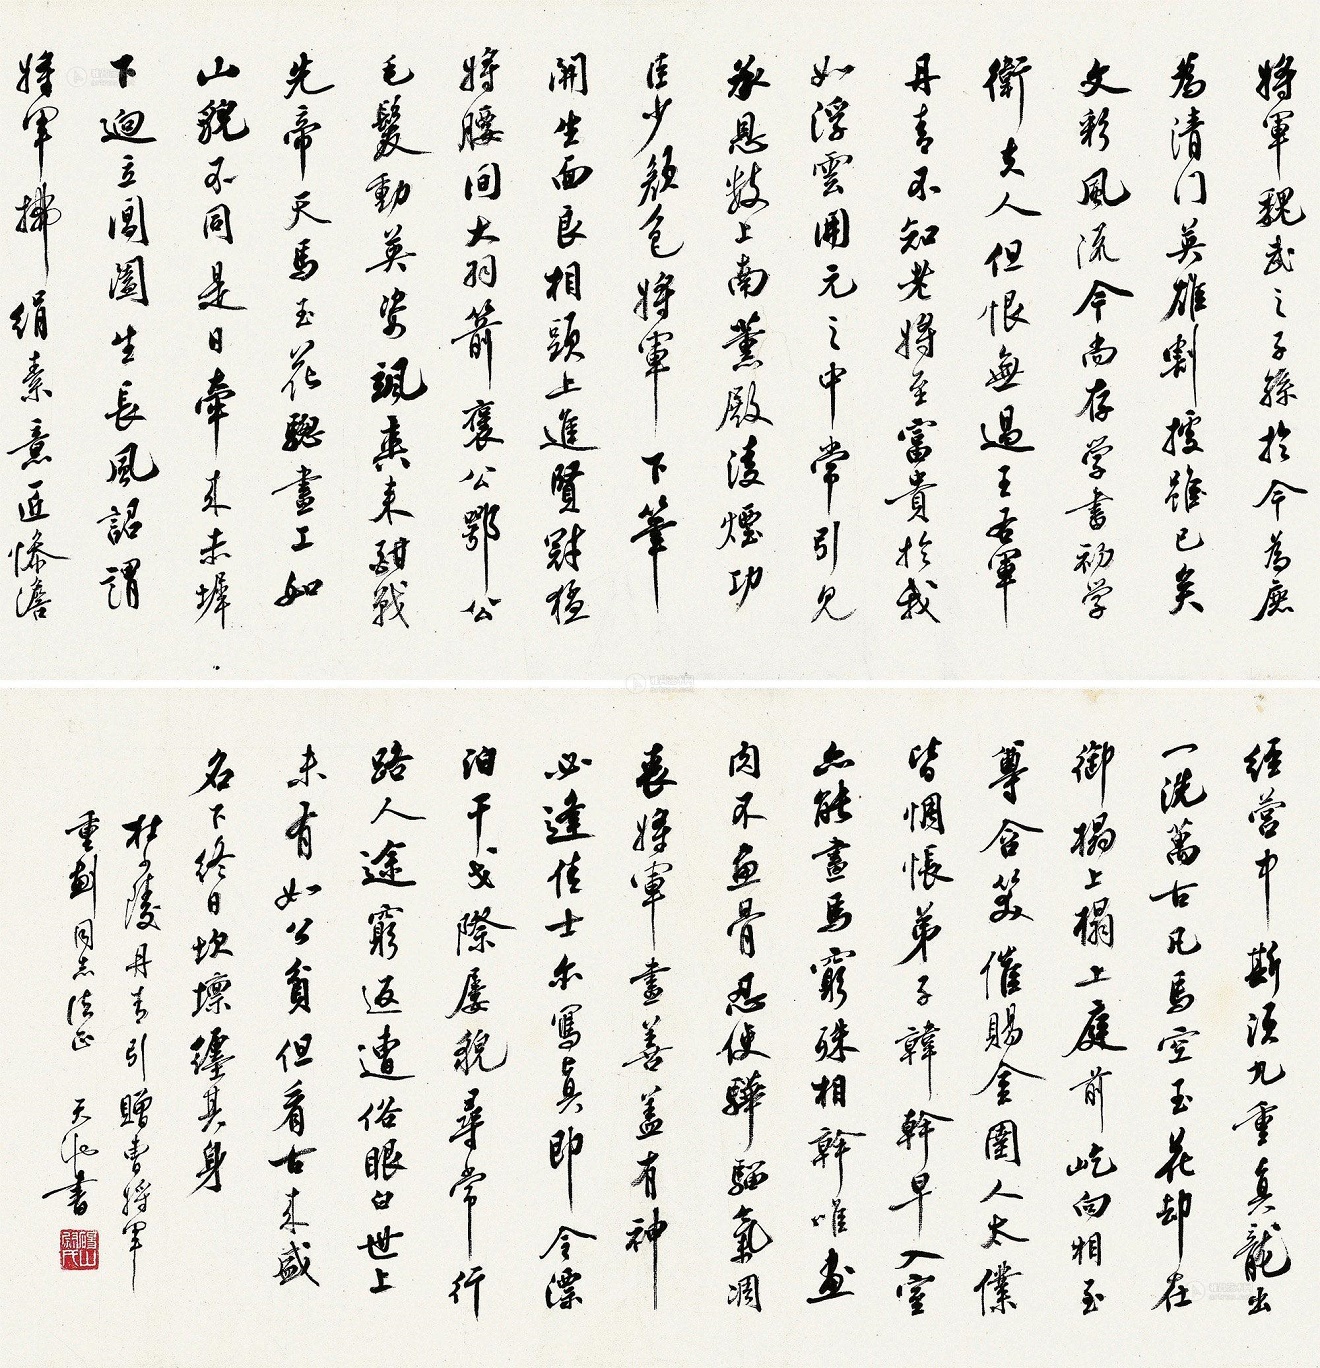 将軍魏武之子孫於今為庶
為清门英雄割據雖已矣
文彩風流今尚存学書初学
衛夫人但恨無過王右軍
丹青不知老將至富貴於我
如浮雲開元之中常引見
承恩数上南薰殿凌煙功
臣少顏色將軍下筆
開生面良相頭上進賢冠猛
將腰间大羽箭褒公鄂公
毛髮動英姿颯爽来酣戰
先帝天馬玉花驄畫工如
山貌不同是日牽来赤墀
下迥立閶闔生長風詔謂
將軍拂绢素意匠惨澹
經营中斯須九重真龍出
一洗萬古凡馬空玉花却在
御榻上榻上庭前屹向相至
尊含笑催賜金圉人太僕
皆惆悵弟子韓幹早入室
亦能畫馬窮殊相幹唯画
肉不画骨忍使驊騮氣凋
喪將軍畫善蓋有神
必逢佳士亦寫真即今漂
泊干戈際屡貌尋常行
路人途窮返遭俗眼白世上
未有如公貧但看古来盛
名下終日坎壈纏其身
杜少陵丹青引贈曹將軍
重劃同志法正 天池書